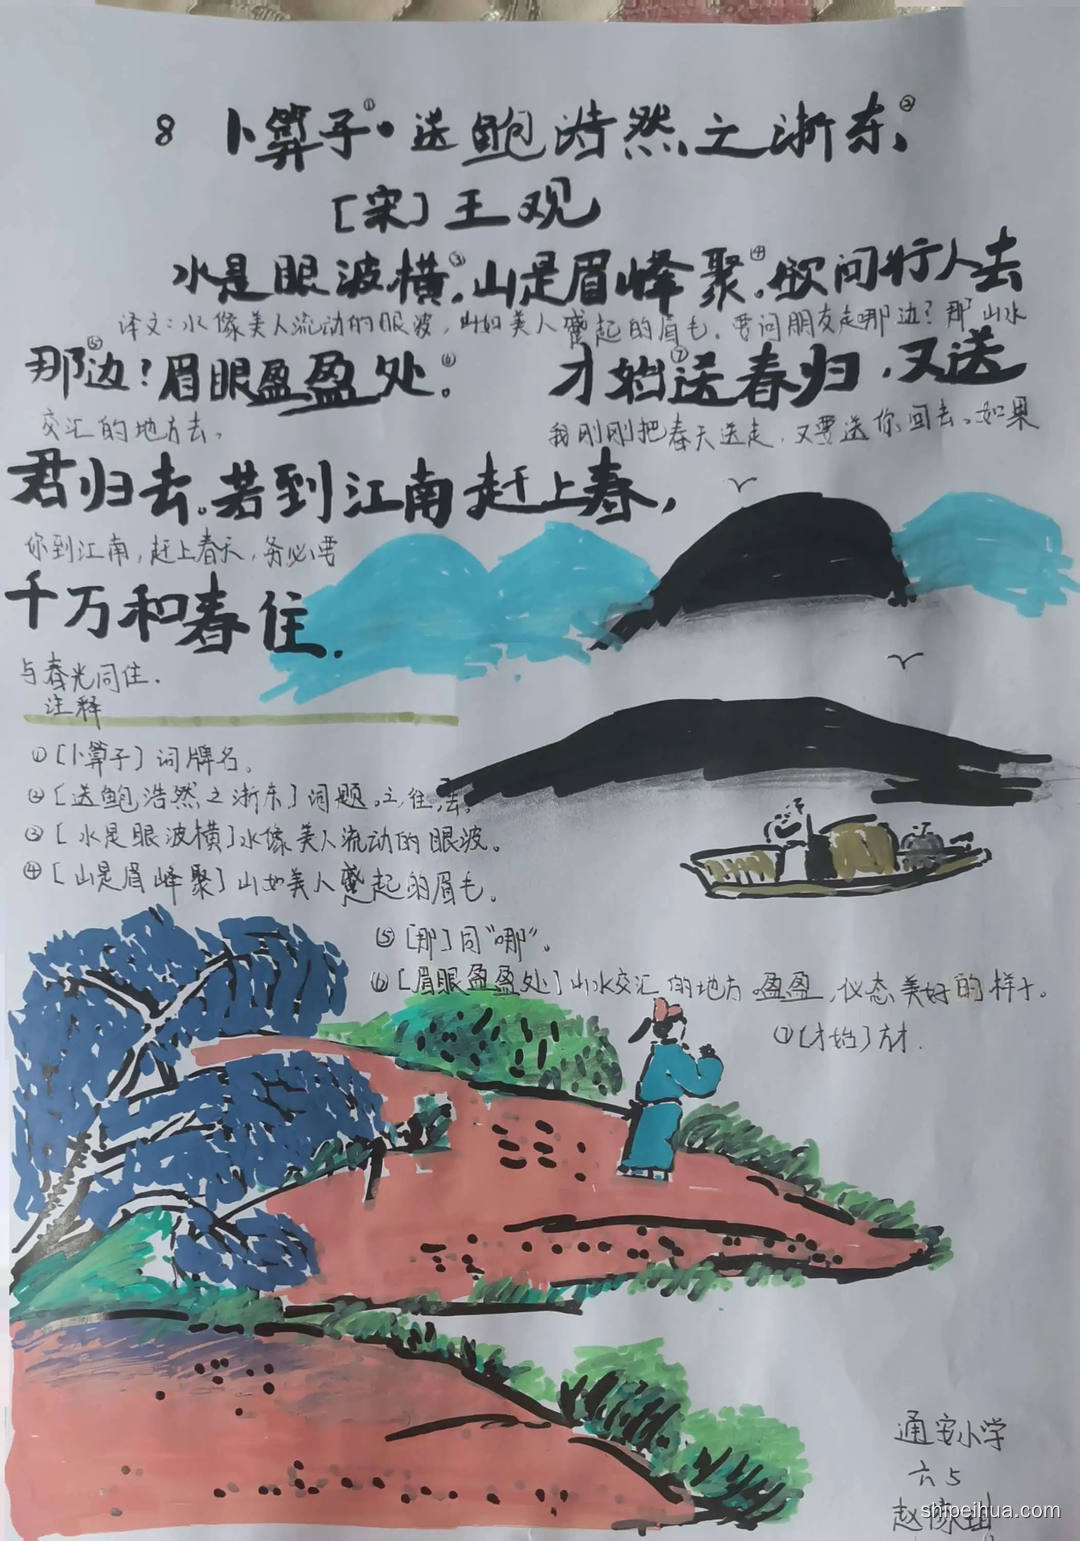 8 卜算子①·送鲍浩然之浙东②
[宋] 王观
水是眼波横③,山是眉峰聚④。欲问行人去
译文:水像美人流动的眼波,山如美人蹙起的眉毛。要问朋友走哪边?那山水
那⑤边?眉眼盈盈处⑥。 才始⑦送春归,又送
交汇的地方去。 我刚刚把春天送走,又要送你回去。如果
君归去。若到江南赶上春,
你到江南,赶上春天,务必要
千万和春住.
与春光同住.
注释
①[卜算子] 词牌名。
②[送鲍浩然之浙东]词题。之,往,去。
③[水是眼波横]水像美人流动的眼波。
④[山是眉峰聚]山如美人蹙起的眉毛。
⑤[那]同“哪”。
⑥[眉眼盈盈处]山水交汇的地方。盈盈,仪态美好的样子。
⑦[才始]方才.
通安小学
六5
赵
shipeihua.com